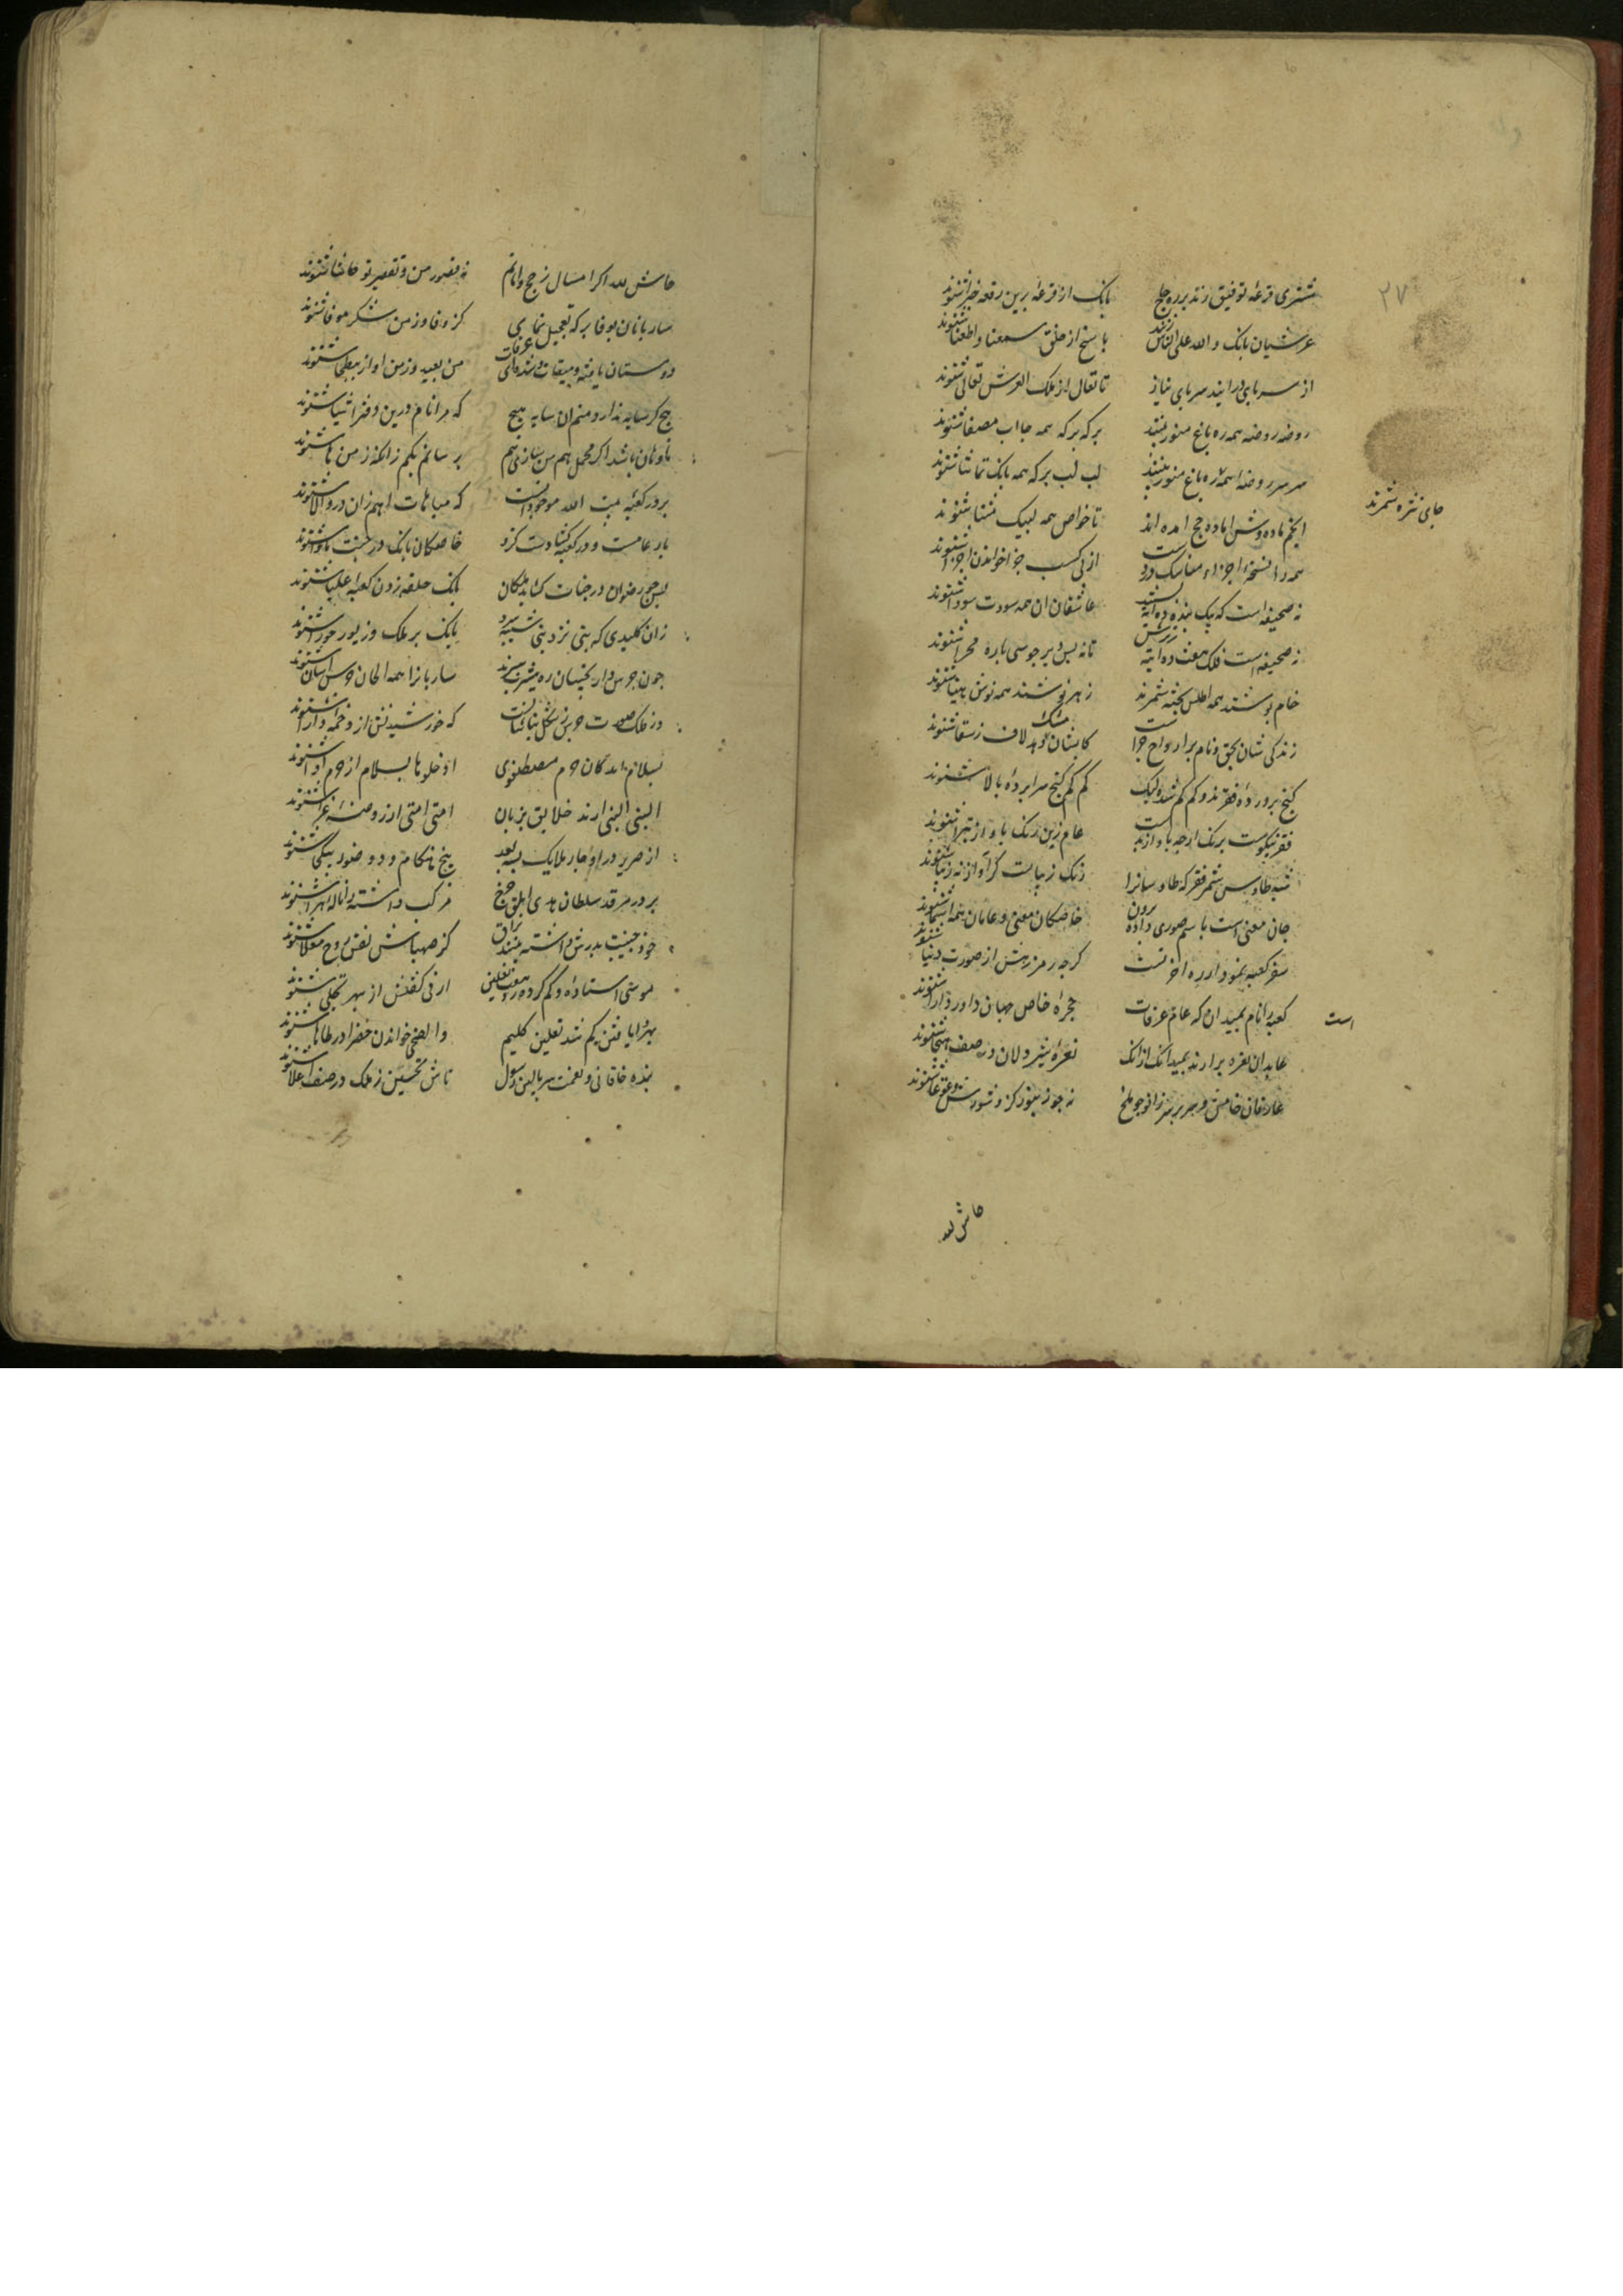 ۲۷
مشتری قرعهٔ توفیق زند بر ره حاج بانک از قرعه برین رقعه خبرا شنوند
عرشیان بانک ولله علی الناس زنند پاسخ از خلق سمعنا و اطعنا شنوند
از سر پای درایند سر پای نیاز تا تعال از ملک العرش تعالی شنوند
روضه روضه همه ره باغ منور بینند برکه برکه همه جا اب مصفا شنوند
سر سر روضه همه ره باغ منور بینند لب لب برکه همه بانک تماشا شنوند
جای نثره شمرند
انجم ماده وش اماده حج امده اند تا خواص همه لبیک مثنا شنوند
همه را نسخه اجزاء مناسک در دست از پی کسب جزا خواندن اجزا شنوند
نه صحیفه است که یک بنده ده ایه عاشقان ان همه سودت سودا شنوند
نه صحیفه است فلک هفت ده ایه تا نه بس دیر جوسی بابره صحرا شنوند
خام پوشند همه اطلس پخته شمرند زهر نوشند همه نوش هنیا شنوند
زندکی شان بحق و نام بر ارواح جو کابشان لاف ز سقا شنوند
کنج پرورده فقرند و کم کم شده لیک کم کم کنج سرا پردهٔ بالا شنوند
فقر نیکوست برنک ارچه باواز بدست عام زین رنک باواز تبرا شنوند
شبه طاوس شمر فقر که طاوسانرا رنک زیباست کر آواز نه زیبا شنوند
جان معنی است باسم صوری داده برون خاصکان معنی و عامان همه اسما شنوند
سفر کعبه نمودار ره اخرتست کرچه رمز رهش از صورت دنیا شنوند
کعبه را نام بمیدان که عام عرفات است حجرهٔ خاص جهان داور دارا شنوند
عابدان نعره برارند بمیدانک ازانک نعرهٔ شیر دلان در صف هیجا شنوند
عارفان خامش و سر بر سر زانو چو ملخ نه چو زنبور کز و شورش و غوغا شنوند
حاش لله
حاش لله اکر امسال ز حج وامانم نه قصور من و تقصیر تو حاشا شنوند
ساربانان بوفا بر که تعجیل نمای کز وفا و ز من شکر موفا شنوند
دوستان یافته میقات و شده زی عرفات من بعید و ز من اواز ببطحا شنوند
هیچ کر سایه ندارد منم ان سایه هیچ که مرا نام درین دفتر اشیا شنوند
ناوهان باشد اکر محمل هم من سازی هم برسانم بکم زانکه ز من ها شنوند
بر در کعبه بیت الله موجوداتست که مباهات امم زان در والا شنوند
بار عامست و در کعبه کشادست کزو خاصکان بانک در جنت ماوا شنوند
پس چو رضوان در جنات کشاید ملکان بانک حلقه زدن کعبه علیا شنوند
زان کلیدی که نبی نزد بنی شیبه سپرد بانک پر ملک و زیور حورا شنوند
چون جرس دار نجیبان ره یثرب سپرند ساربانرا همه الحان جرس اسا شنوند
وز فلک صورت جرس شکل بنات که خورشیدش از و خمه دارا شنوند
بسلام امدکان حرم مصطفوی ادخلوها بسلام از حرم آوا شنوند
النبی النبی ارند خلایق بزبان امتی امتی از روضهٔ غرا شنوند
از صریر در او چار ملایک بسه بعد پنج هنکام دو صور بیکجا شنوند
بر در مرقد سلطان هدی ابلق چرخ مرکب داشته را ناله هرا شنوند
خود جنیبت بدرش داشته بینند براق کز صهیبش نفس روح معلا شنوند
موسی استاده و کم کرده ز دهشت نعلین ارنی کفتنش از بهر تجلی شنوند
بهر وایافتن کم شده نعلین کلیم والضحی خواندن خضر از در طاها شنوند
بنده خاقانی و نعمت سر بالین رسول تاش تحسین ز ملک در صف اعلا شنوند